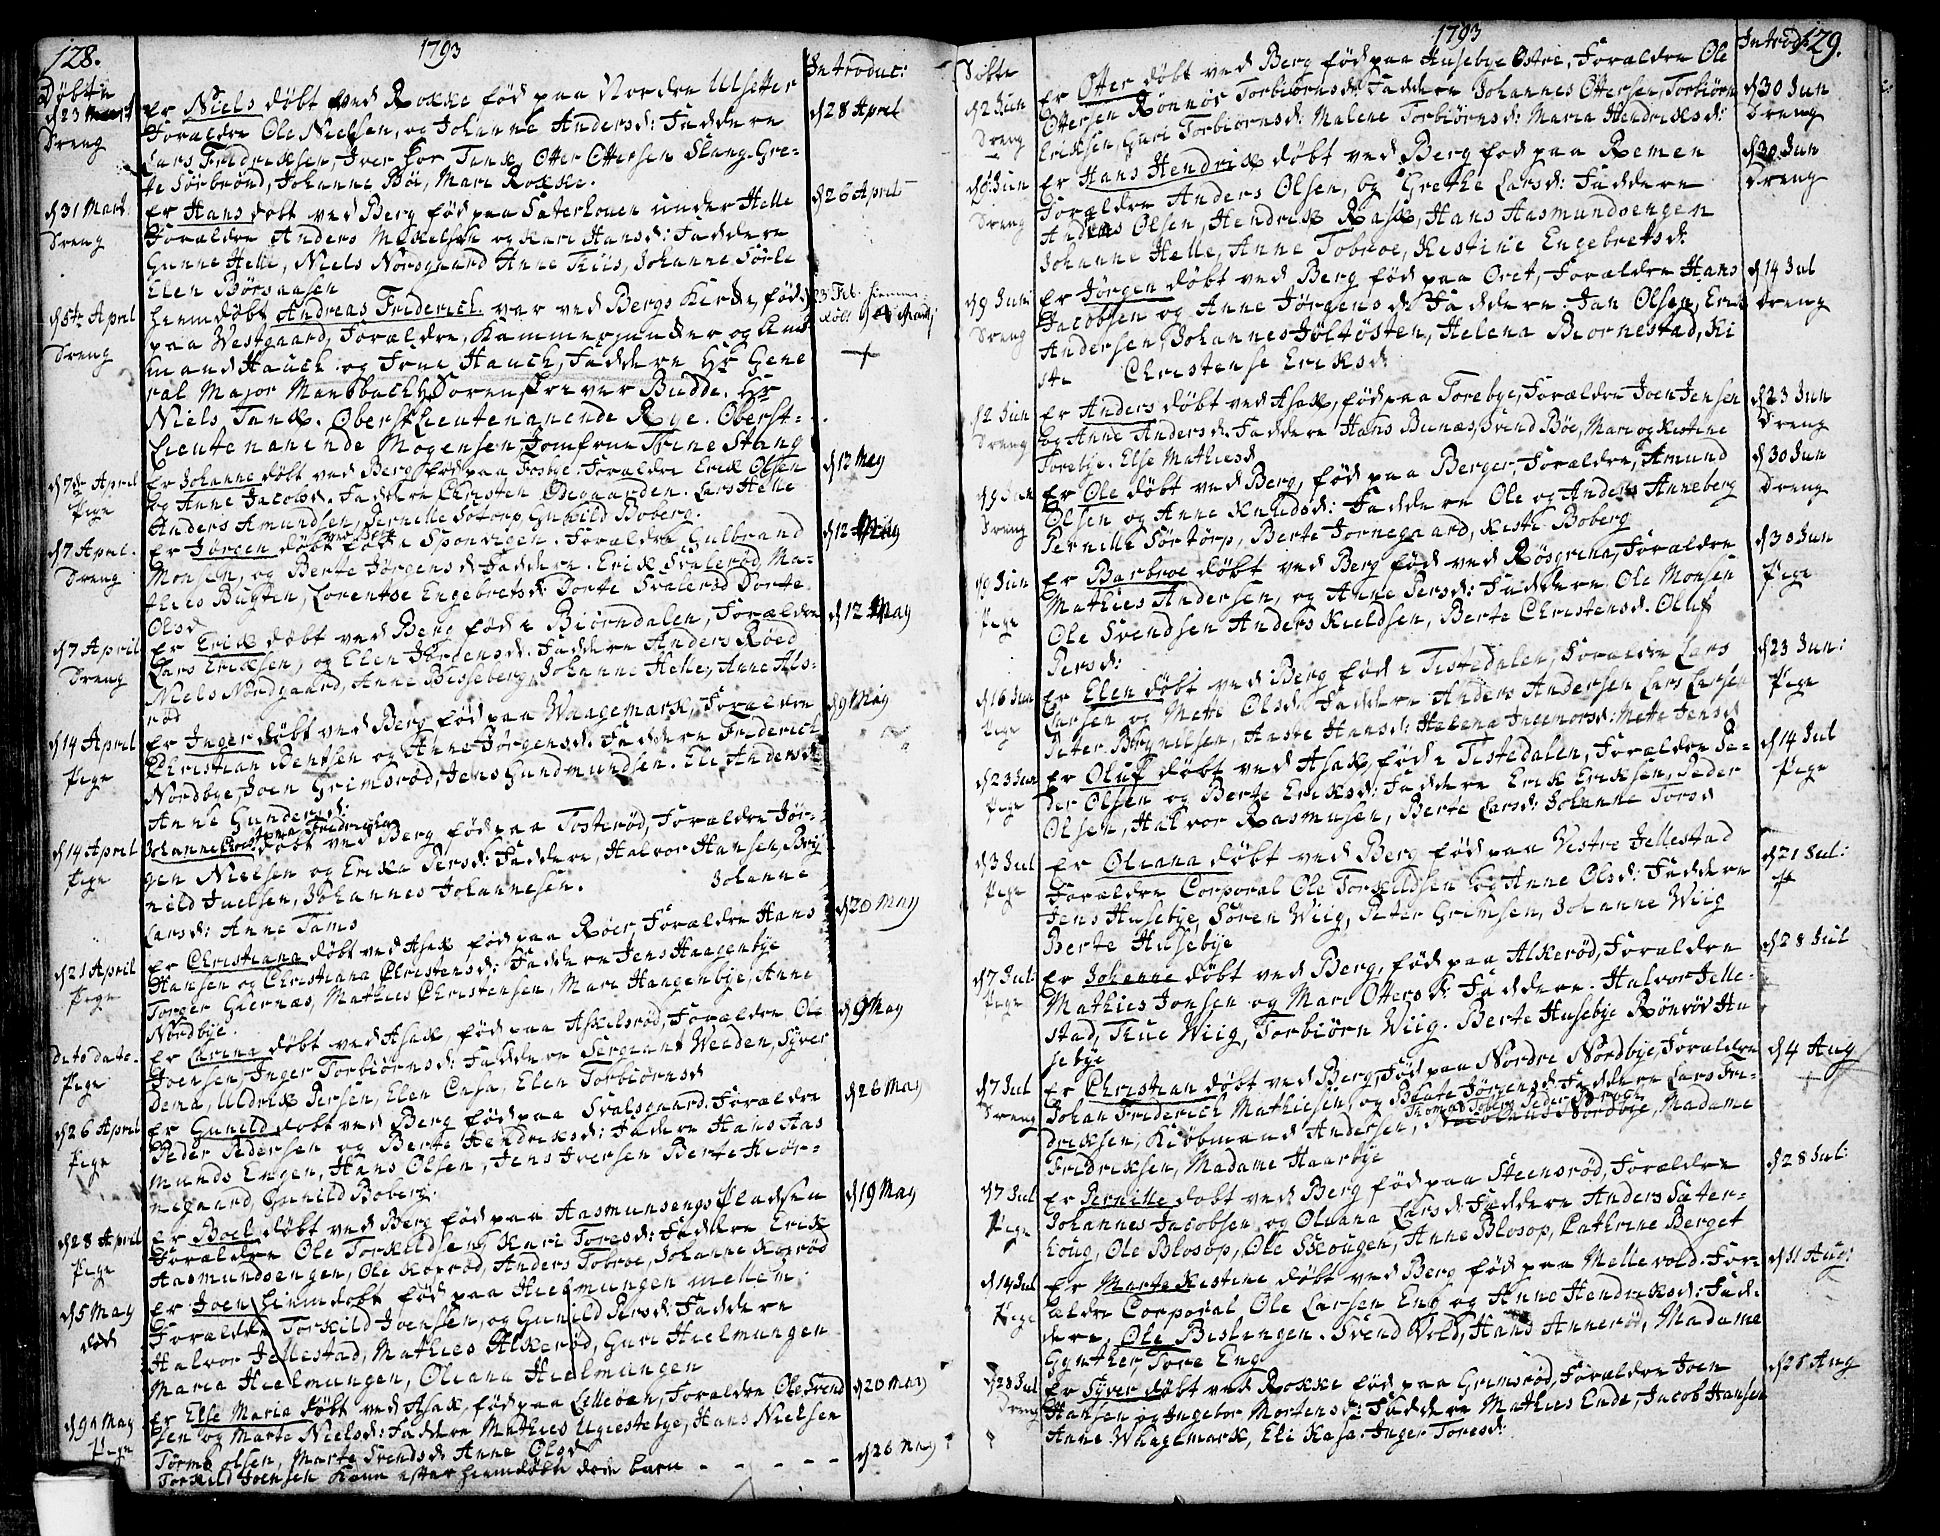 128.
1793
Introduc:
Döbte
d 23 Mart
Dreng
Er Niels döbt ved Rokke föd paa Norden Ulsetter
Forældre Ole Nielsen, og Johanne Andersd: Faddere
Lars Fridriksen, Iver hos Tank, Otter Ottersen Stang. Gre-
te Sörbrönd, Johanne Böe, Mari Rokke.
d 28 April
d 31 Mart.
Dreng
Er Hans döbt ved Berg föd paa Saterhouen under Helle
Forældre Anders Mikelsen og Kari Hansd: Faddere
Gunne Helle, Niels Nordgaard Anne Tiis, Johanne Sörle
Elen Börsaasen
d 26 April
d 5te April
Dreng
hiemdöbt Andreas Friderich var ved Bergs Kirke, föd
paa Westgaard, Forældre, Kammerjunker og Amt
mand Hauch og Frue Hauch, Faddere Hr Gene
ral Major Mansbach, Sorenskriver Budde. Hr
Niels Tank. Oberstlieutenaninde Rye. Oberst-
lieutenaninde Mogensen, Jomfrue Trine Stang
23 Feb. hiemme
döbt
d 7de April
Pige
Er Johanne döbt ved Berg föd paa Fosbye. Forældre Erik Olsen
og Anne Jacobsd. Faddere Christen Ödegaarden. Lars Helle
Anders Amundsen, Pernille Sotorp Gunild Boberg.
d 12 May
d 7 April.
Dreng
Er Jörgen döbt ved Berg föd i Sponvigen. Forældre Gulbrand
Monsen, og Berte Jörgensd Faddere. Erik Svalerød Ma-
thies Bugten, Lorentse Engebretsd: Dorte Svaleröd Dorte
Olsd
d 12 May
d 7 April
Dreng
Er Erik döbt ved Berg föd i Biörndalen, Forældre
Lars Eriksen, og Elen Jörgensd: Faddere Anders Röed
Niels Nordgaard, Anne Bisseberg, Johanne Helle, Anne Als-
röd
d 12 May
d 14 April
Pige
Er Inger döbt ved Berg föd paa Waagemark, Forældre
Christian Bentsen og Anne Jörgensd: Faddere Friderich
Nordbye, Joen Grimsröd, Jens Gundmundsen. Eli Andersd
Anne Gundersd:
d 9 May
d 14 April
Pige
Johanne Anna Fridericha döbt ved Berg föd paa Tosteröd, Forældre Jör-
gen Nielsen og Erika Persd: Faddere, Halvor Hansen, Bryn
nild Juelsen, Johannes Johannesen. Johanne
Larsd: Anne Tams
d 20 May
d 21 April
Pige
Er Christiana döbt ved Asak föd paa Röer Forældre Hans
Hansen og Christiana Christensd: Faddere Jens Haagenbye
Torger Guernæs, Mathies Christensen, Mari Haagenbye, Anne
Nordbye.
dato dato.
Pige
Er Carina döbt ved Asak, föd paa Askelsröd, Forældre Ole
Joensen, Inger Torbiörnsd: Faddere Sergiant Weeden, Syver
Dema, Uldrik Persen, Elen Ensa, Elen Torbiörnsd
d 9 May
d 26 April
Pige
Er Gunild döbt ved Berg föd paa Svalsgaard. Forældre
Peder Pedersen og Berte Hendriksd: Faddere Hans Aas
munds Engen, Hans Olsen, Jens Iversen Berte Kiör-
negaard, Gunild Boberg.
d 26 May
d 28 April
Pige
Er Boel döbt ved Berg föd paa Aasmunsengs Pladsen
Forældre Ole Torkildsen og Kari Toresd: Faddere Erik
Aasmundsengen, Ole Kopröd, Anders Tobroe, Johanne Kopröd
d 19 May
d 5 May
död
Er Joen hiemdöbt föd paa Hielmungen mellem
Forældre Torkild Joensen, og Gunild Persd: Faddere
Halvor Jellestad, Mathies Alkeröd, Guri Hielmungen
Maria Hielmungen, Oliana Hielmungen
d 9de May
Pige
Er Else Maria döbt ved Asak, föd paa Lilleöen, Forældre Ole Svend
sen og Marte Nielsd: Faddere Mathies Ugiestebye, Hans Nielsen
Tormo Olsen, Marte Svendsd Anne Olsd
d 20 May
Torkild Joensen Kone efter hiemdöbte döde barn - - - - -
d 26 May
1793
129.
Introd:
Döbte
d 2 Jun
Dreng
Er Otter döbt ved Berg föd paa Husebye Östre, Forældre Ole
Ottersen Rönnöe Torbiörnsd: Faddere Johannes Ottersen, Torbiörn
Eriksen, Guri Torbiörnsd: Malene Torbiörnsd: Maria Hendriksd:
d 30 Jun
Dreng
d 6: Jun
Dreng
Er Hans Hendrik döbt ved Berg föd paa Remen
Forældre Anders Olsen, og Grethe Larsd: Faddere
Anders Olsen, Hendrik Rask, Hans Aasmundsengen
Johanne Helle, Anne Tobroe, Kestine Engebretsd:
d 30 Jun
Dreng
d 9 Jun
Dreng
Er Jörgen döbt ved Berg föd paa Oret, Forældre Hans
Jacobsen og Anne Jörgensd: Faddere: Jan Olsen, Erik
Andersen Johannes Töltösten, Helena Biornestad, Ki
sti Christense Eriksd:
d 14 Jul
Dreng
d 2 Jun
Dreng
Er Anders döbt ved Asak, föd paa Torebye, Forældre Joen Jensen
og Anne Andersd. Faddere Hans Bunæs, Svend Böe, Mari og Kistine
Torebye. Else Mathiesd
d 23 Jun
Dreng
d 9 Jun
Dreng
Er Ole döbt ved Berg, föd paa Berger, Forældre, Amund
Olsen og Anne Knudsd: Faddere Ole og Anders Anneberg
Pernille Sörtörp, Berte Jornegaard, Kisti Boberg
d 30 Jun
Dreng
d 9 Jun
Pige
Er Barbroe döbt ved Berg föd ved Rösgrina, Forældre
Mathies Andersen, og Anne Persd: Faddere Ole Monsen
Ole Svendsen Anders Kieldsen, Berte Christensd. Oluf
Persd:
d 30 Jun
Pige
d 16 Jun
Pige
Er Elen döbt ved Berg föd i Tistedalen, Forældre Lars
Larsen og Mette Olsd: Faddere Anders Andersen Lars Larsen
Peter Brynilsen, Aaste Hansd: Helena Ingemorsd: Mette Jensd
d 23 Jun:
Pige
d 23 Jun
Pige
Er Oluf döbt ved Asak, föd i Tistedalen, Forældre Pe-
der Olsen og Berte Eriksd: Faddere Erik Eriksen, Peder
Olsen, Halvor Rasmusen, Berte Larsd: Johanne Torsd
d 14 Jul
Pige
d 3 Jul
Pige
Er Oliana döbt ved Berg föd paa Vestre Jellestad
Forældre Corporal Ole Torkildsen og Anne Olsd: Faddere
Jens Husebye, Sören Wiig, Peter Grimsen, Johanne Wiig
Berte Husebye
d 21 Jul:
d 7 Jul:
Pige
Er Johanne döbt ved Berg, föd paa Alkeröd, Forældre
Mathies Jonsen og Mari Ottersd: Faddere. Halvor Jelle-
stad, True Wiig, Torbiörn Wiig. Berte Husebye Rönnöv Hu
sebye
d 28 Jul
d 7 Jul
Dreng
Er Christian döbt ved Berg, föd paa Nordre Nordbye, Forældre
Johan Friderich Mathiesen, og Beate Jörgensd: Faddere Lars Fri-
driksen, Kiöbmand Andersen, Nordbye, Madame
Fridriksen, Madame Haarbye
d 4 Aug
d 7 Jul
Pige
Er Pernille döbt ved Berg föd paa Steensröd, Forældre
Johannes Jacobsen, og Oliana Larsd: Faddere Anders Sater-
houg, Ole Blosop, Ole Skougen, Anne Blosop, Cathrine Berget
d 28 Jul:
d 14 Jul
Pige
Er Marte Kistine döbt ved Berg föd paa Mellevold. For-
ældre Corporal Ole Larsen Eng og Anne Hendriksd: Fad-
dere, Ole Bislangen. Svend Vold, Hans Anneröd, Madame
Gynther, Tore Eng
d 11 Aug:
d 28 Jul
Dreng
Er Syver döbt ved Rokke föd paa Grimsröd, Forældre Joen
Hansen og Ingebor Mortensd: Faddere Mathies Ende, Jacob Hansen
Anne Waagemark, Eli Kasa. Inger Toresd:
d 25 Aug